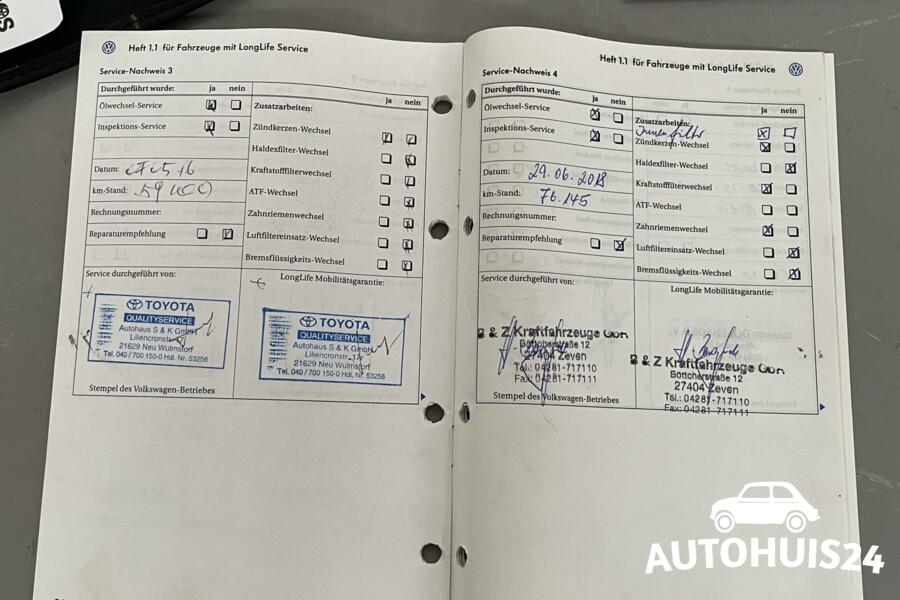 Heft 1.1 für Fahrzeuge mit LongLife Service
Service-Nachweis 3
Durchgeführt wurde: ja nein
Ölwechsel-Service
Inspektions-Service
Datum:
km-Stand:
Rechnungsnummer:
Reparaturempfehlung
ja nein
Zusatzarbeiten:
Zündkerzen-Wechsel
Haldexfilter-Wechsel
Kraftstofffilterwechsel
ATF-Wechsel
Zahnriemenwechsel
Luftfiltereinsatz-Wechsel
Bremsflüssigkeits-Wechsel
Service durchgeführt von:
TOYOTA
QUALITYSERVICE
Autohaus S & K GmbH
Liliencronstr. 17
21629 Neu Wulmstorf
Tel. 040 / 700 150-0 Hdl. Nr. 53256
Stempel des Volkswagen-Betriebes
LongLife Mobilitätsgarantie:
TOYOTA
QUALITYSERVICE
Autohaus S & K GmbH
Liliencronstr. 17
21629 Neu Wulmstorf
Tel. 040 / 700 150-0 Hdl. Nr. 53256
Heft 1.1 für Fahrzeuge mit LongLife Service
Service-Nachweis 4
Durchgeführt wurde: ja nein
Ölwechsel-Service
Inspektions-Service
Datum: 29.06.2018
km-Stand: 76.145
Rechnungsnummer:
Reparaturempfehlung
ja nein
Zusatzarbeiten:
Innenfilter
Zündkerzen-Wechsel
Haldexfilter-Wechsel
Kraftstofffilterwechsel
ATF-Wechsel
Zahnriemenwechsel
Luftfiltereinsatz-Wechsel
Bremsflüssigkeits-Wechsel
Service durchgeführt von:
& Z Kraftfahrzeuge
Böttcherstraße 12
27404 Zeven
Tel.: 04281-717110
Fax: 04281-717111
Stempel des Volkswagen-Betriebes
LongLife Mobilitätsgarantie:
& Z Kraftfahrzeuge
Böttcherstraße 12
27404 Zeven
Tel.: 04281-717110
Fax: 04281-717111
AUTOHUIS24